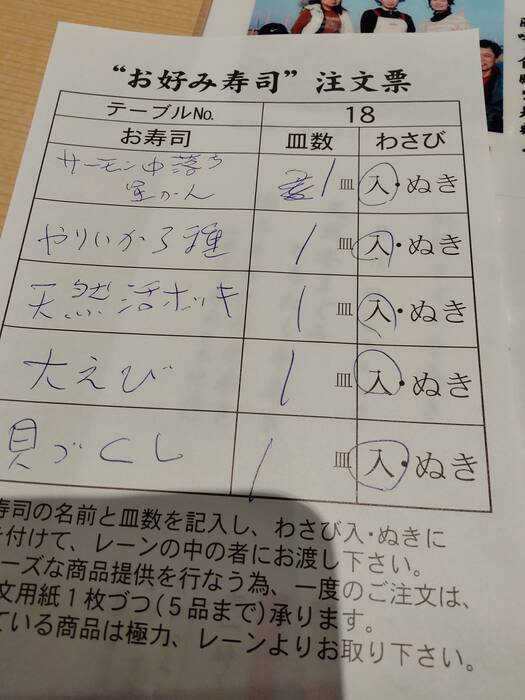 “お好み寿司” 注文票
テーブルNo. 18
お寿司 皿数 わさび
サーモン中落ち
軍かん 1皿 入・ぬき
やりいか3種 1皿 入・ぬき
天然活ホッキ 1皿 入・ぬき
大えび 1皿 入・ぬき
貝づくし 1皿 入・ぬき
寿司の名前と皿数を記入し、わさび入・ぬきに
を付けて、レーンの中の者にお渡し下さい。
ーズな商品提供を行なう為、一度のご注文は、
文用紙1枚づつ(5品まで)承ります。
ている商品は極力、レーンよりお取り下さい。